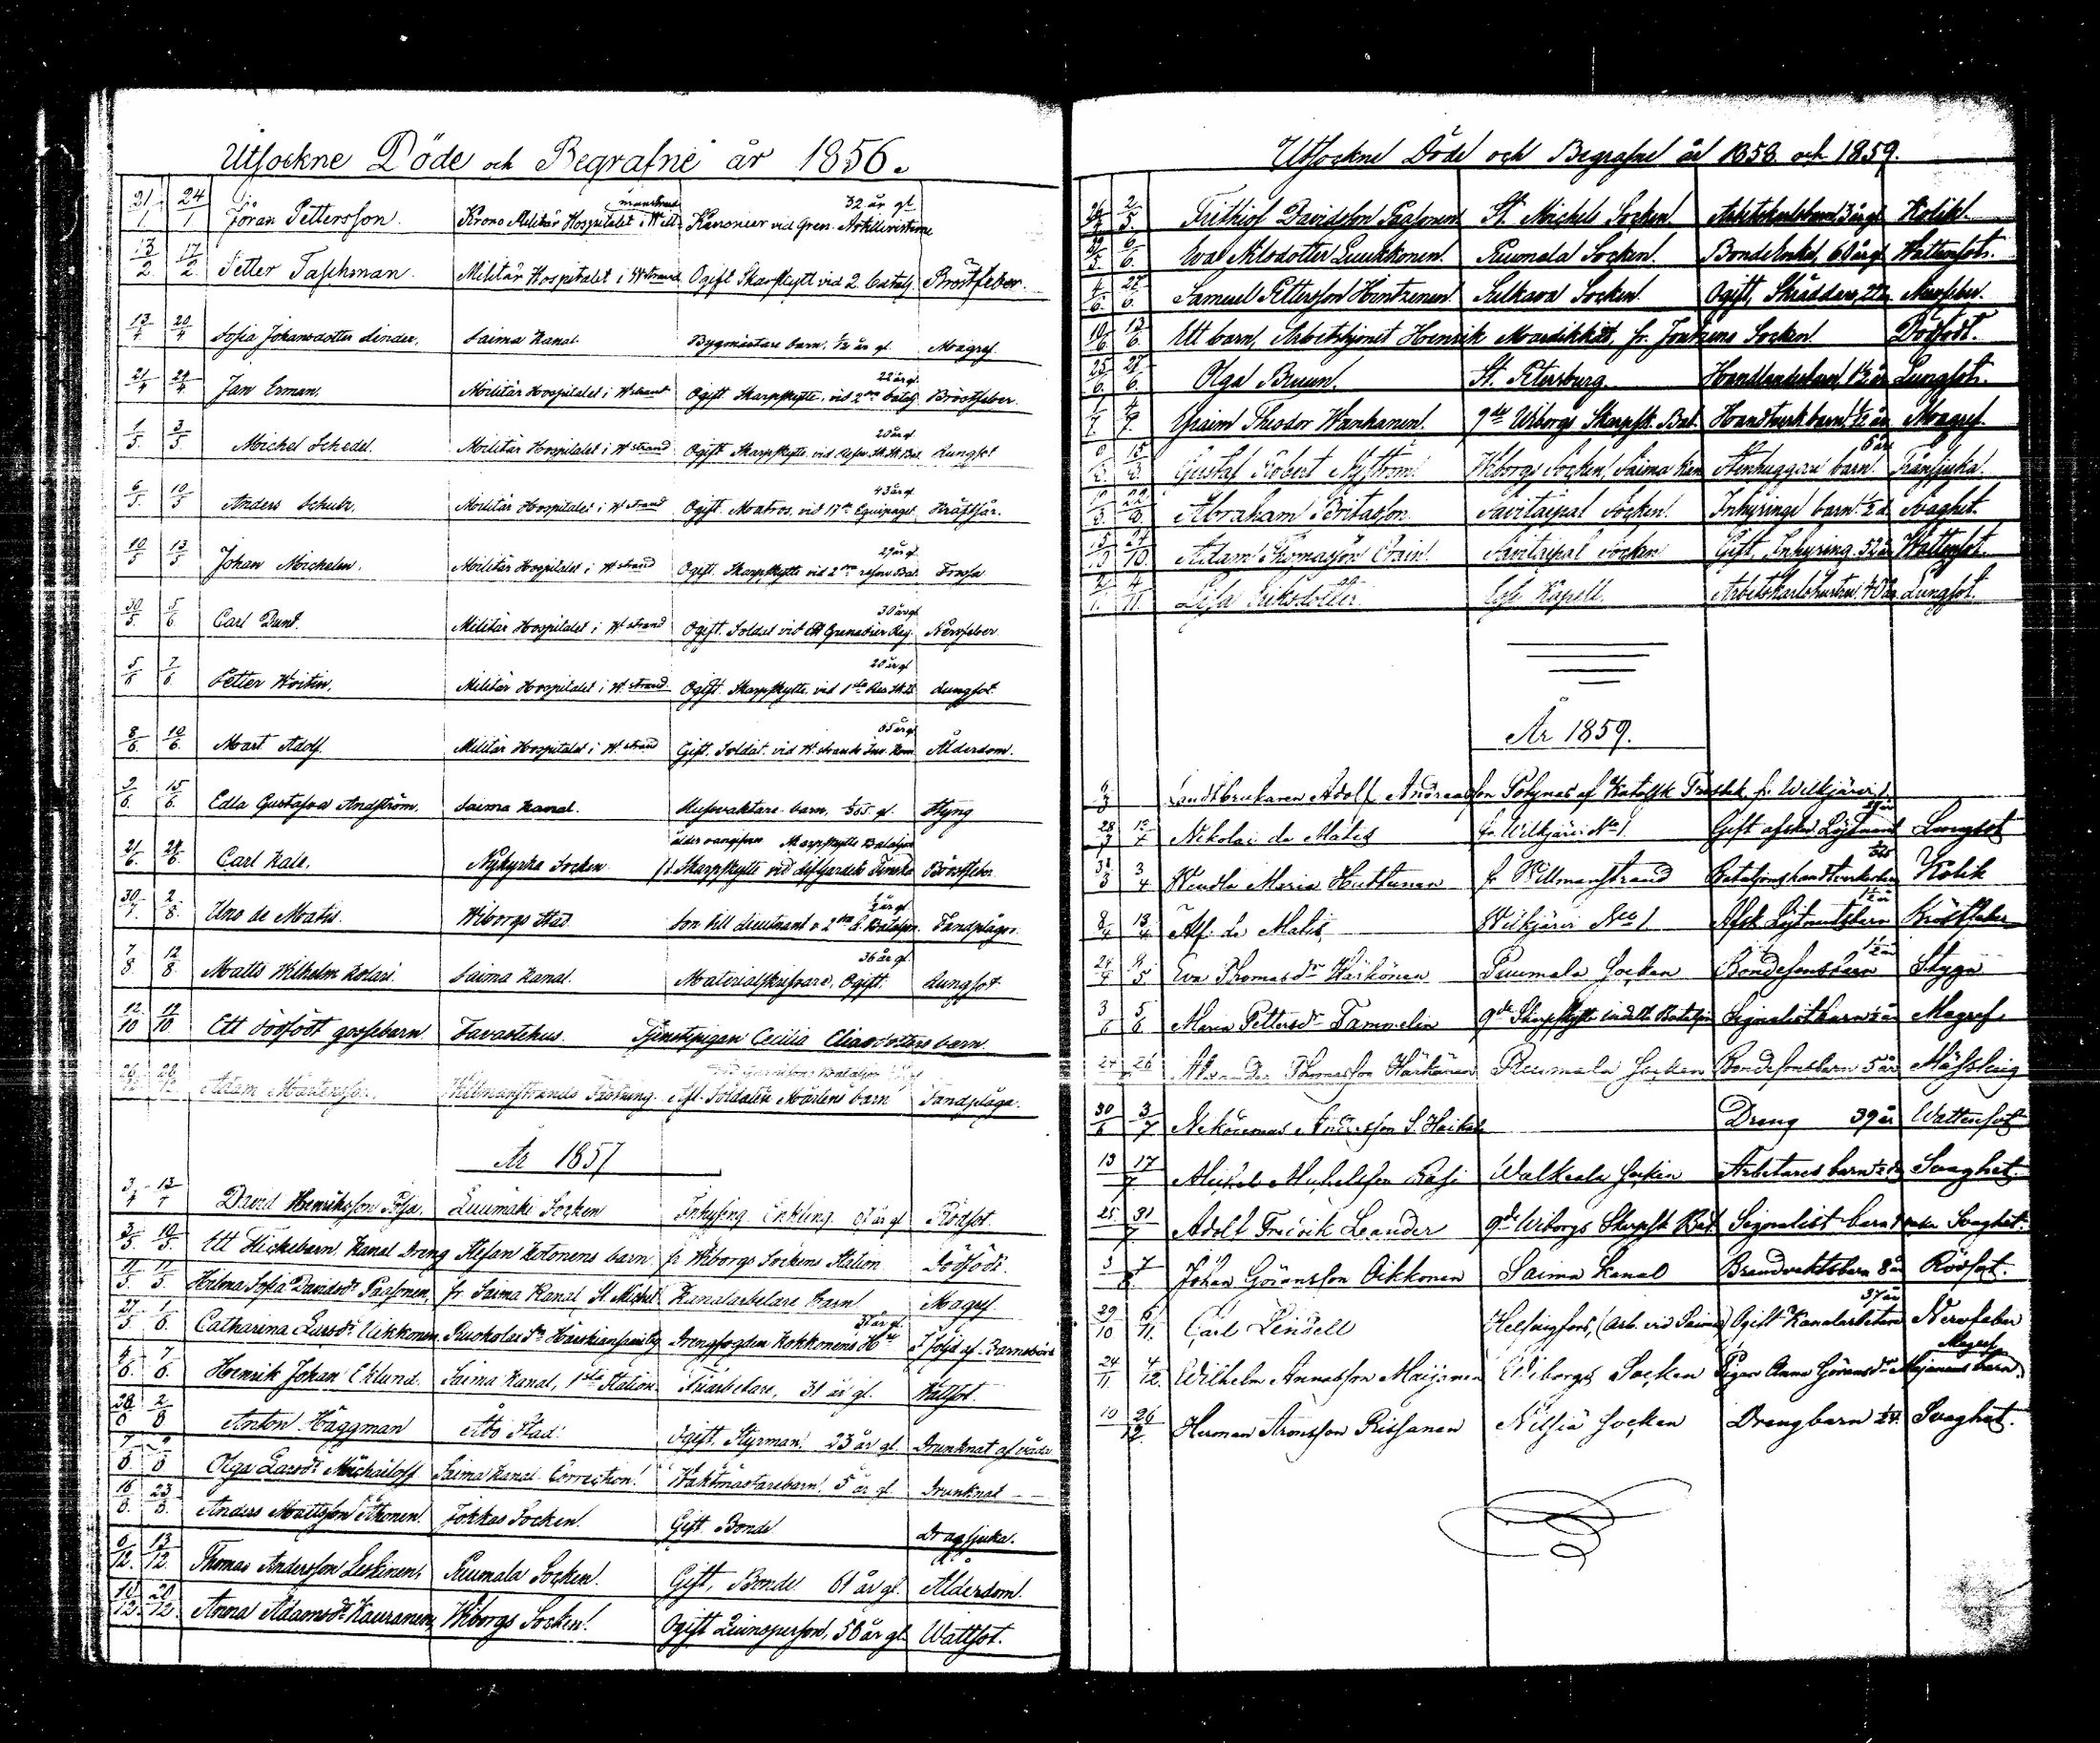 Utsockne Döde och Begrafne år 1856.
21/1 24/1 Jöran Pettersson. Krono Militär Hospitalet i Will-manstrand Kanonier vid Gren. Artilleristerne 32 år gl
13/2 17/2 Petter Taschman. Militär Hospitalet i W strand Ogift Skarpskytt vid 2. batalj. Bröstfeber.
13/4 20/4 Sofia Johansdotter Linder. Saima Kanal. Bygmästare barn, 1/2 år gl. Magref.
21/4 24/4 Jan Erman. Militär Hospitalet i W strand Ogift. Skarpskytte, vid 2dra batalj. 22 år gl. Bröstfeber.
1/5 3/5 Michel Schedel. Militär Hospitalet i W strand Ogift Skarpskytte vid Reserv. 20 år gl Lungsot
6/5 10/5 Anders Schulz. Militär Hospitalet i W strand Ogift. Matros. vid 17de Equipaget. 43 år gl. Kräftsår.
10/5 13/5 Johan Michelin. Militär Hospitalet i W strand Ogift. Skarpskytte vid 2dra reserv Bat. 29 år gl. Frosa
30/5 5/6 Carl Dunt. Militär Hospitalet i W strand Ogift. Soldat vid Grenadier Reg. 30 år gl Nervfeber.
5/6 7/6 Petter Woitin. Militär Hospitalet i W. strand Ogift. Skarpskytte. vid 1sta Res. 20 år gl Lungsot.
8/6. 10/6. Mart Adolf. Militär Hospitalet i W. strand Gift. Soldat. vid W. strands Inv. Kom. 65 år gl Ålderdom.
2/6. 15/6. Edla Gustafva Andström. Saima Kanal. Slussvaktare barn, gl. Styng
21/6. 24/6. Carl Kale. Nykyrka Socken Skarpskytte vid Finska Skarpskytte Bataljon Bröstfeber.
30/7 2/8. Uno de Matis. Wiborgs Stad Son till Lieutnant v 2dra Bataljon. 1/2 år gl. Tandplågor.
7/8. 12/8. Matts Wilhelm Kolari. Saima Kanal. Materialskrifvare, Ogift. 36 år gl. Lungsot.
12/10 17/10. Ett dödfödt gossebarn. Tavastehus. Tjenstepigan Cecilia Eliasdotters barn.
Adam Mårtensson. Willmanstrands Fästning. Soldaten Mårtens barn Tandplåga.
År 1857
David Henriksson Luumäki Socken Inhysing Enkling. år gl Rödsot.
3/5. 10/5. Ett Flickebarn Kanal Dreng Stefan Kotonens barn fr Wiborgs Sockens Station Dödfödt.
11/5. 17/5. Helena Sofia Davidsdr Paasonen, fr. Saima Kanal, St. Michel Kanalarbetare barn Magref.
27/5 1/6. Catharina Larsdr Uikkonen Ruokolax Drengfogden Kokkonens Hru år gl. I följd af Barnsbörd
4/6. 7/6. Henrik Johan Eklund. Saima Kanal, 1sta Station. Träarbetare, 31 år gl. Wattsot.
28/ 2/8 Anton Häggman Åbo Stad. Ogift. Styrman. 23 år gl. Drunknat af våda
Olga Larsdr Michailoff Saima Kanal Correction. Waktmästarebarn. 5 år gl Drunknat
16/8. 23/8. Anders Mattsson Ahonen. Jokkas Socken. Gift. Bonde Dragsjuka.
6/12. 13/12. Thomas Andersson Leskinen. Puumala Socken. Gift, Bonde 61 år gl. Ålderdom.
18/12. 20/12. Anna Adamsdr Kauranen, Wiborgs Socken. Ogift Qvinsperson, 56 år gl. Wattsot.
Utsockne Döde och Begrafne år 1858 och 1859.
2/5. Frithiof Davidsson Paasonen St. Michels Socken Arbetskarlsbarn, 3 år gl Kolik.
29/5. 6/6. Eva Nilsdotter Luukkonen. Puumala Socken. Bondeenka, 60 år gl Wattensot.
4/6. 27/6. Samuel Pettersson Hintzenen. Sulkava Socken. Ogift, Skräddare, Nervfeber.
10/6. 13/6. Ett barn, Arbetshjonet Henrik Mardikkas, fr. Joutseno Socken. Dödfödt.
25/6. 27/6. Olga Bruun. St. Petersburg Handlandebarn, 1 1/2 år Lungsot.
1/7. 4/7. Efraim Theodor Wanhanen. 9de Wiborgs Skarpsk. Bat. Handtverk barn, 1/2 år Magref.
Gustaf Robert Nyström. Wiborgs Socken, Saima Kan Stenhuggare barn. 6 år Trånsjuka.
Abraham Britasson Savitaipal Socken. Inhysinge barn 1/2 d. Svaghet.
24/10. Adam Thomasson Savitaipal Socken Gift, Inhysing. 52 år Wattensot.
4/11. Lisa Eriksdotter. Kapell. Arbetskarlshustru. 40 år Lungsot.
År 1859.
Landtbrukaren Adolf Andreasson Potynas af Katolsk fr. Wilkjärvi 1.
28/3 10/4 Nikolai de Matis fr Wilkjärvi No 1. Gift afsked Löjtnant Lungsot
31/3 3/4 Wendla Maria Huttunen fr Willmanstrand Bataljonshandtverkarebarn Kolik
8/4 13/4 Alf. de Matis Wilkjärvi No 1 Afsk Löjtnantsbarn 1 1/2 år Bröstfeber
24/4 9/5 Eva Thomasdr Härkönen Puumala Socken Bondesonsbarn 1 1/2 år Stygn
3/6 5/6 Maria Pettersdr Tammelin 9de Skarpskytte indelta Bataljon Signalistbarn år Magref.
24 26 Alexander Thomasson Härkönen Puumala Socken Bondesonsbarn 5 år Mässling
30/6 3/7 Nekodemus Andersson S. Haikala Dreng 39 år Wattensot
13 17/7. Michel Michelsson Rasi Walkeala Socken Arbetares barn Svaghet.
25 31/7 Adolf Fredrik Leander 9de Wiborgs Skarpsk Bat. Signalist barn Svaghet.
3 7/8. Johan Göransson Oikkonen Saima Kanal Brandvaktsbarn 8 år Rödsot.
29/10 6/11. Carl Lindell Helsingfors, (arb. vid Saima) Ogift Kanalarbetare 37 år Nervfeber
24/11. 4/12. Wilhelm Annasson Maijanen Wiborgs Socken Pigan Anna Göransdr Maijanens barn. Magref
10 26/12. Herman Aronsson Rissanen Nilsiä Socken Drengbarn Svaghet.